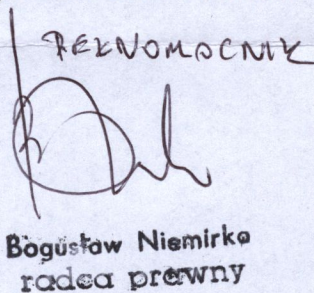 PEŁNOMOCNIK
Bogusław Niemirko
radca prawny